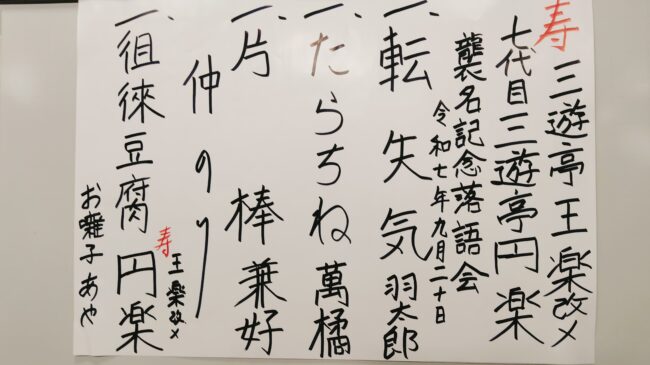 寿 三遊亭王楽改メ
七代目三遊亭円楽
襲名記念落語会
令和七年九月二十日
一、転失気 羽太郎
一、たらちね 萬橘
一、片棒 兼好
仲のり
一、徂徠豆腐 円楽
寿 王楽改メ
お囃子 あや